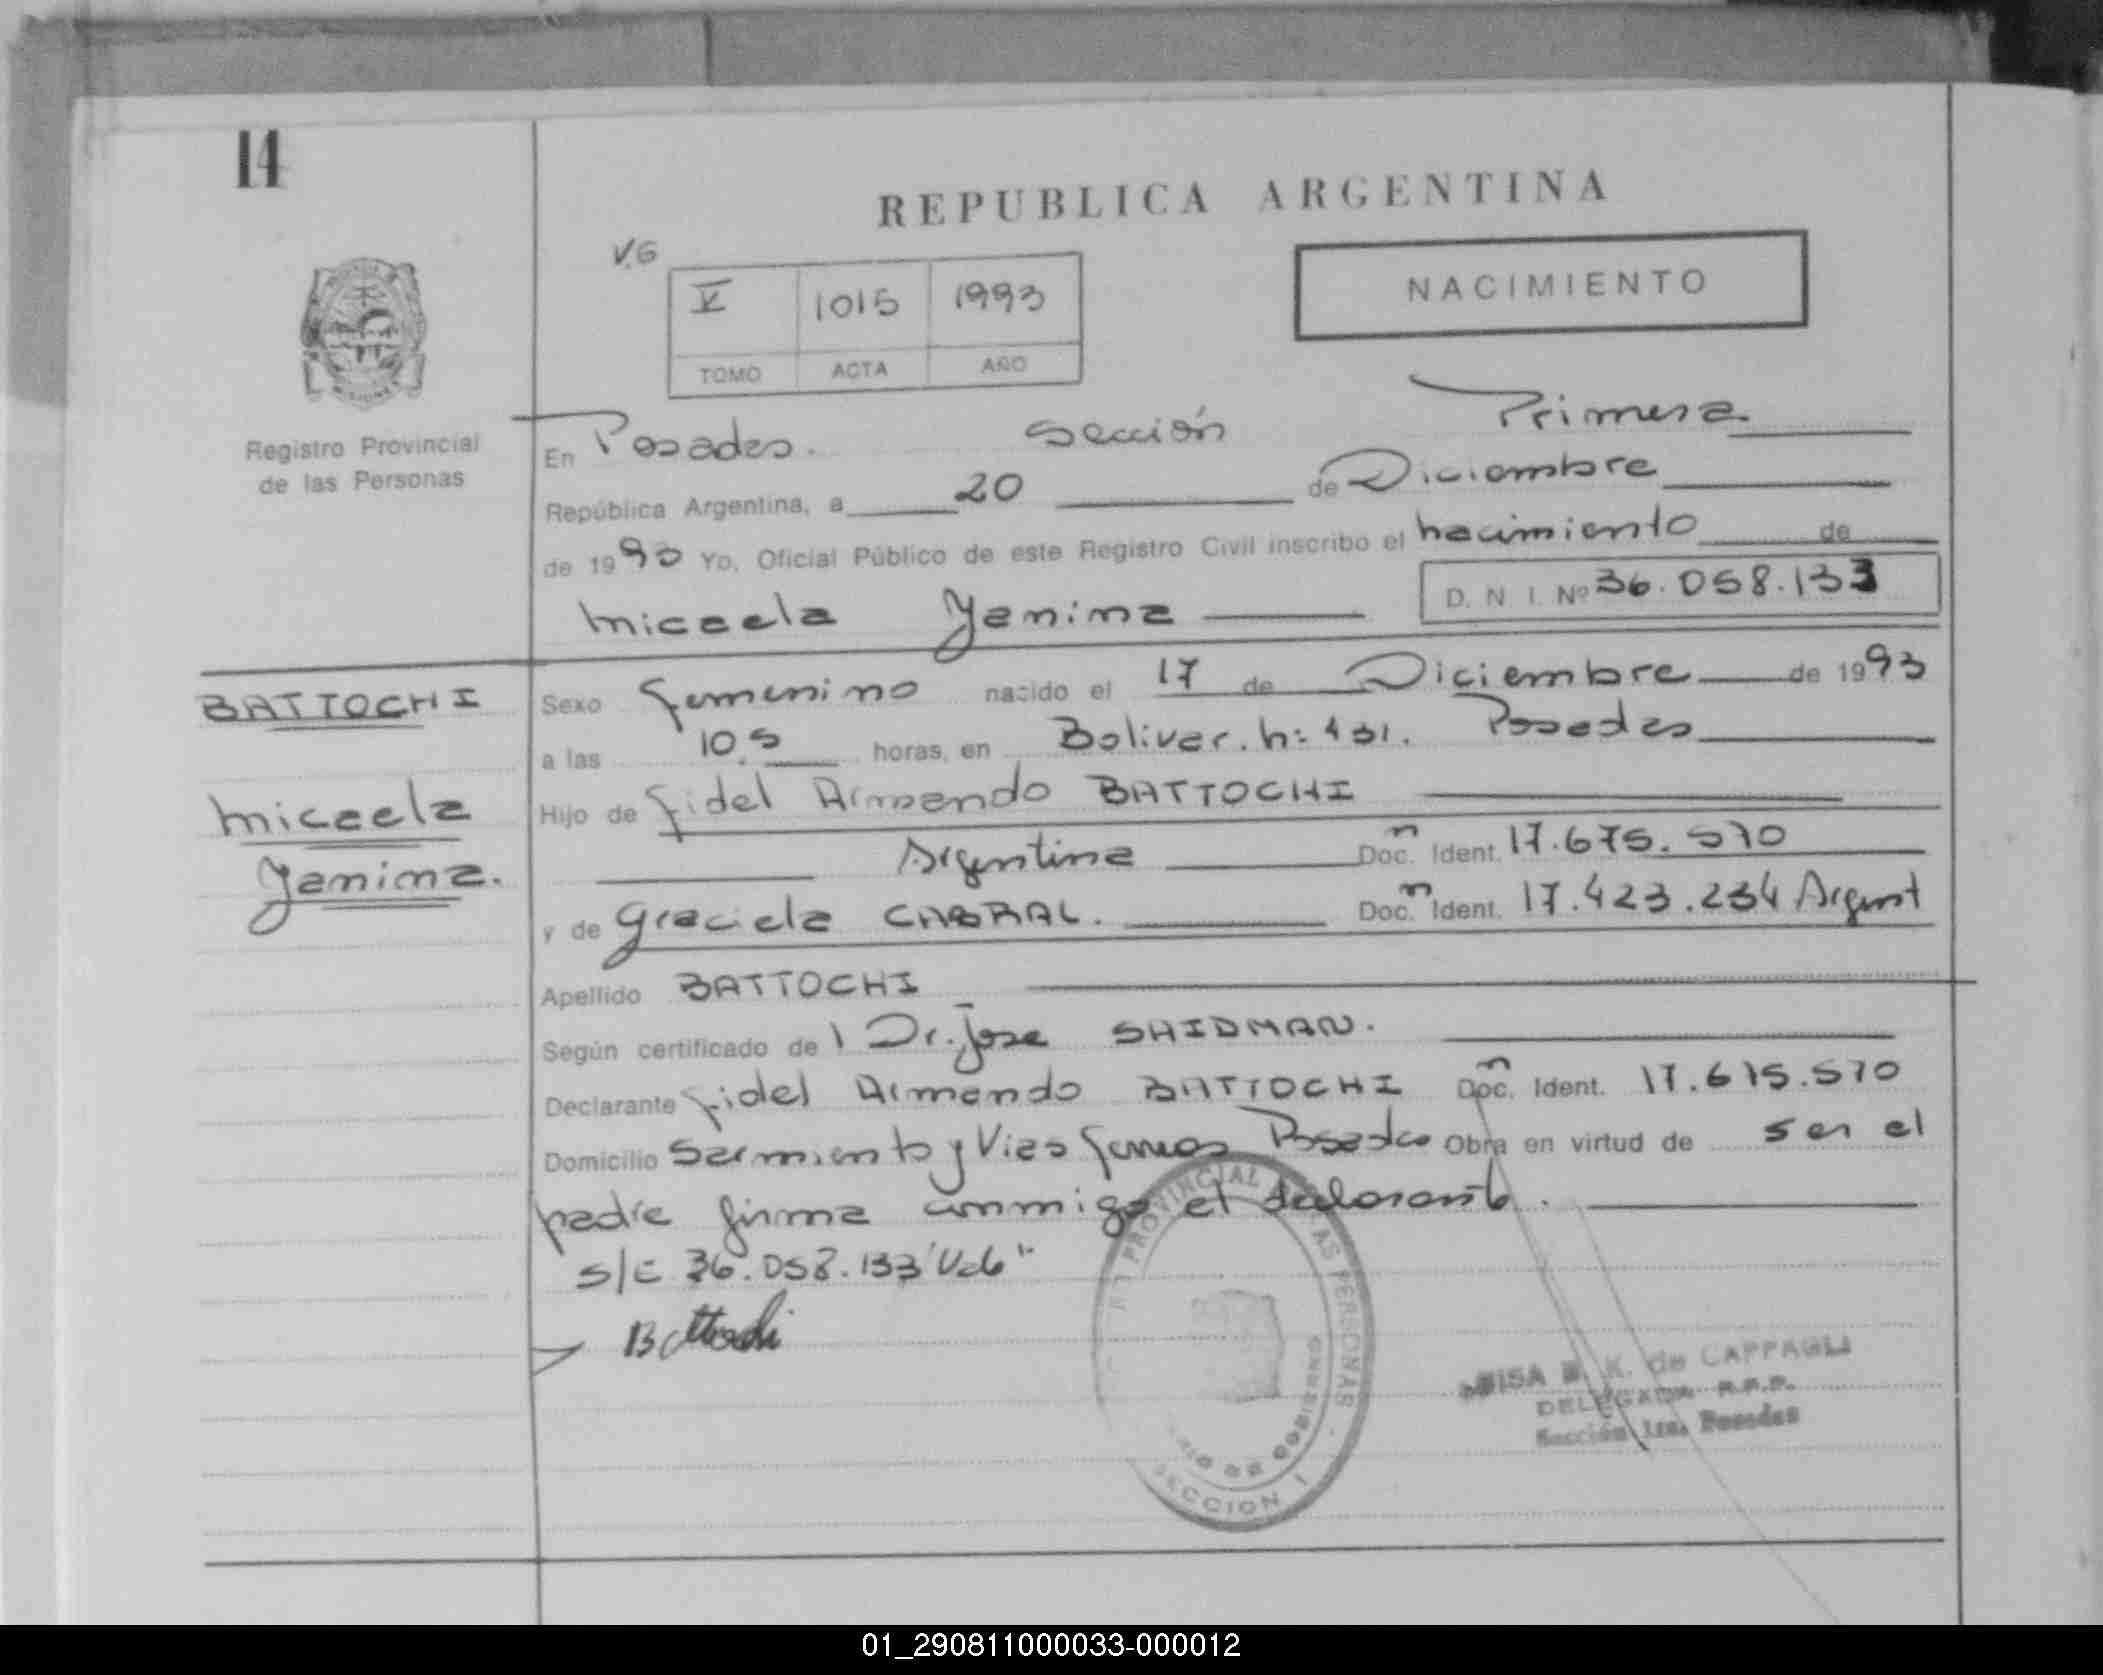 14
REPUBLICA ARGENTINA
V.G
V 1015 1993
TOMO ACTA AÑO
NACIMIENTO
Registro Provincial
de las Personas
En Posadas. Sección Primera
República Argentina, a 20 de Diciembre
de 1993 Yo, Oficial Público de este Registro Civil inscribo el nacimiento de
Micaela Yanina D. N. I. Nº 36.058.133
BATTOCHI
Micaela
Yanina.
Sexo femenino nacido el 17 de Diciembre de 1993
a las 10,5 horas, en Bolivar. n: 431. Posadas
Hijo de fidel Armando BATTOCHI
Argentina Doc. n Ident. 17.675.570
y de Graciela CABRAL. Doc. n Ident. 17.423.234 Argent
Apellido BATTOCHI
Según certificado de l Dr. Jose SAIDMAN.
Declarante fidel Armando BATTOCHI Doc. n Ident. 17.675.570
Domicilio Sarmiento y Vias Posadas Obra en virtud de ser el
padre firma conmigo el declarante.
S/E 36.058.133
Battochi
PROVINCIAL DE LAS PERSONAS
SECCION I
K. de CAPPAGLI
DELEGADA R.P.P.
Sección 1ra. Posadas
01_290811000033-000012